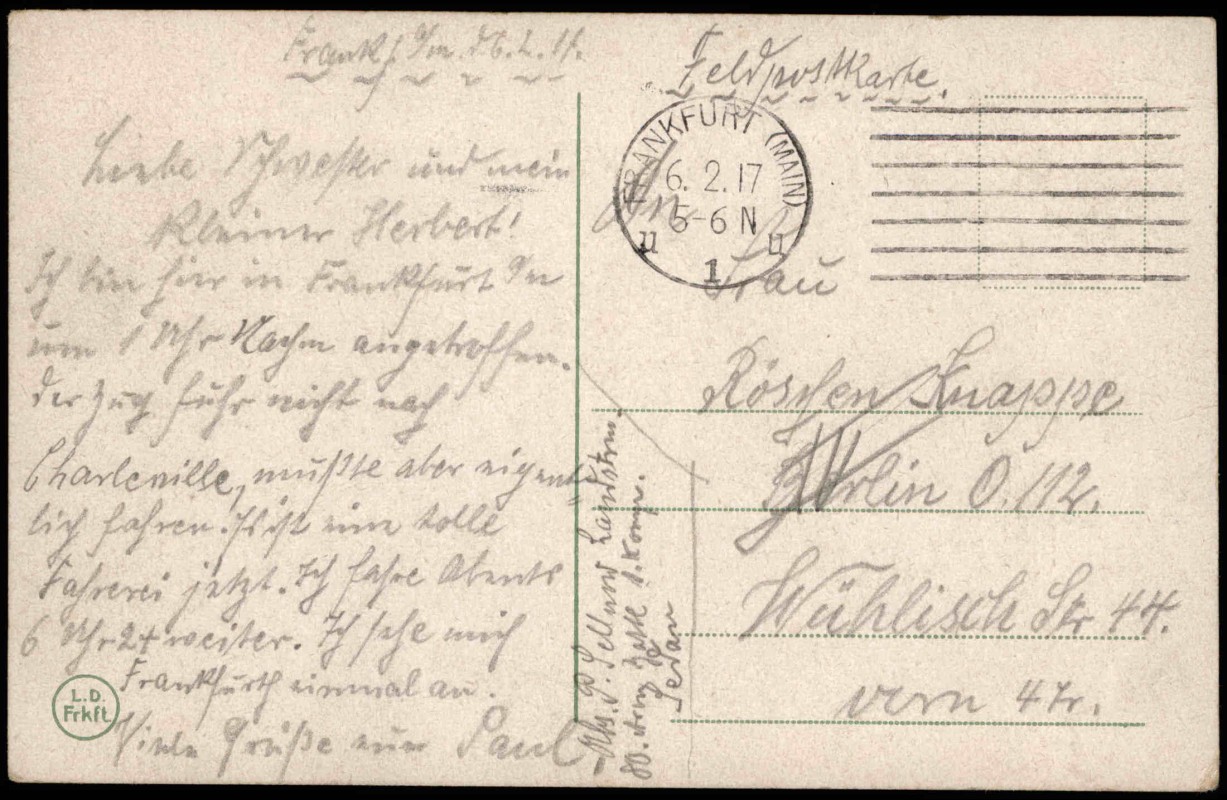 Frankf. a/m. d 6.2.17.
Liebe Schwester und mein
kleiner Herbert!
Ich bin hier in Frankfurt a/m
um 1 Uhr Nachm angetroffen.
der Zug fuhr nicht nach
Charleville, mußte aber eigent-
lich fahren. Es ist eine tolle
Fahrerei jetzt. Ich fahre Abents
6 Uhr 24 weiter. Ich sehe mich
Frankfurth einmal an.
Viele Grüße euer Paul
L.D.
Frkft.
Feldpostkarte.
FRANKFURT (MAIN)
6. 2. 17
5-6 N
u u
1
An
Frau
Röschen Knappe
Berlin O. 112.
Wühlisch Str 44.
vorn 4 Tr.
Abs. P. Landstrm.
1. Komp.
Sedan